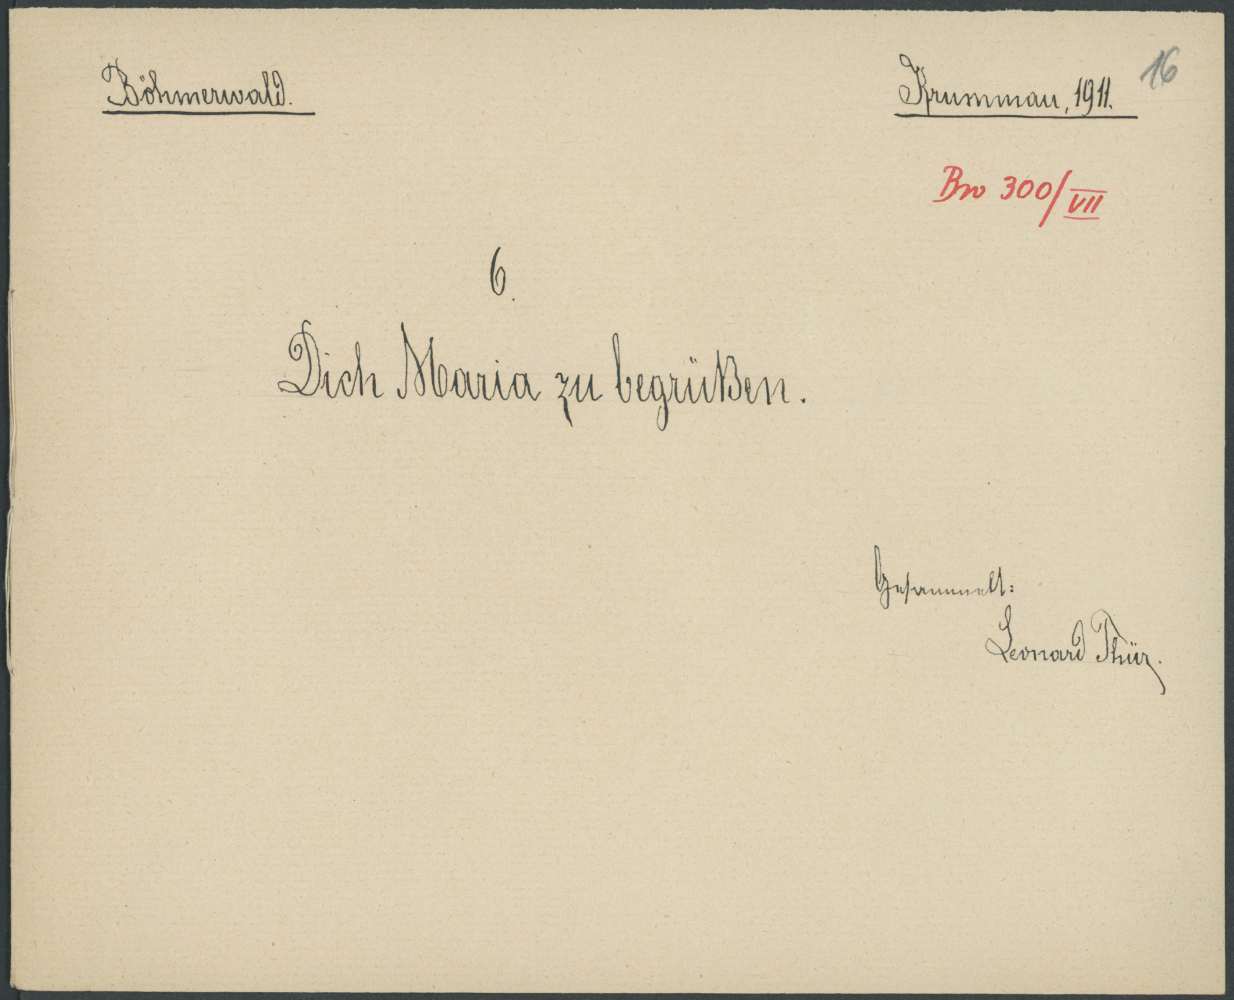 Böhmerwald.
Krummau, 1911.
16
Bw 300/VII
6.
Dich Maria zu begrüßen.
Gesammelt:
Leonard Thür.